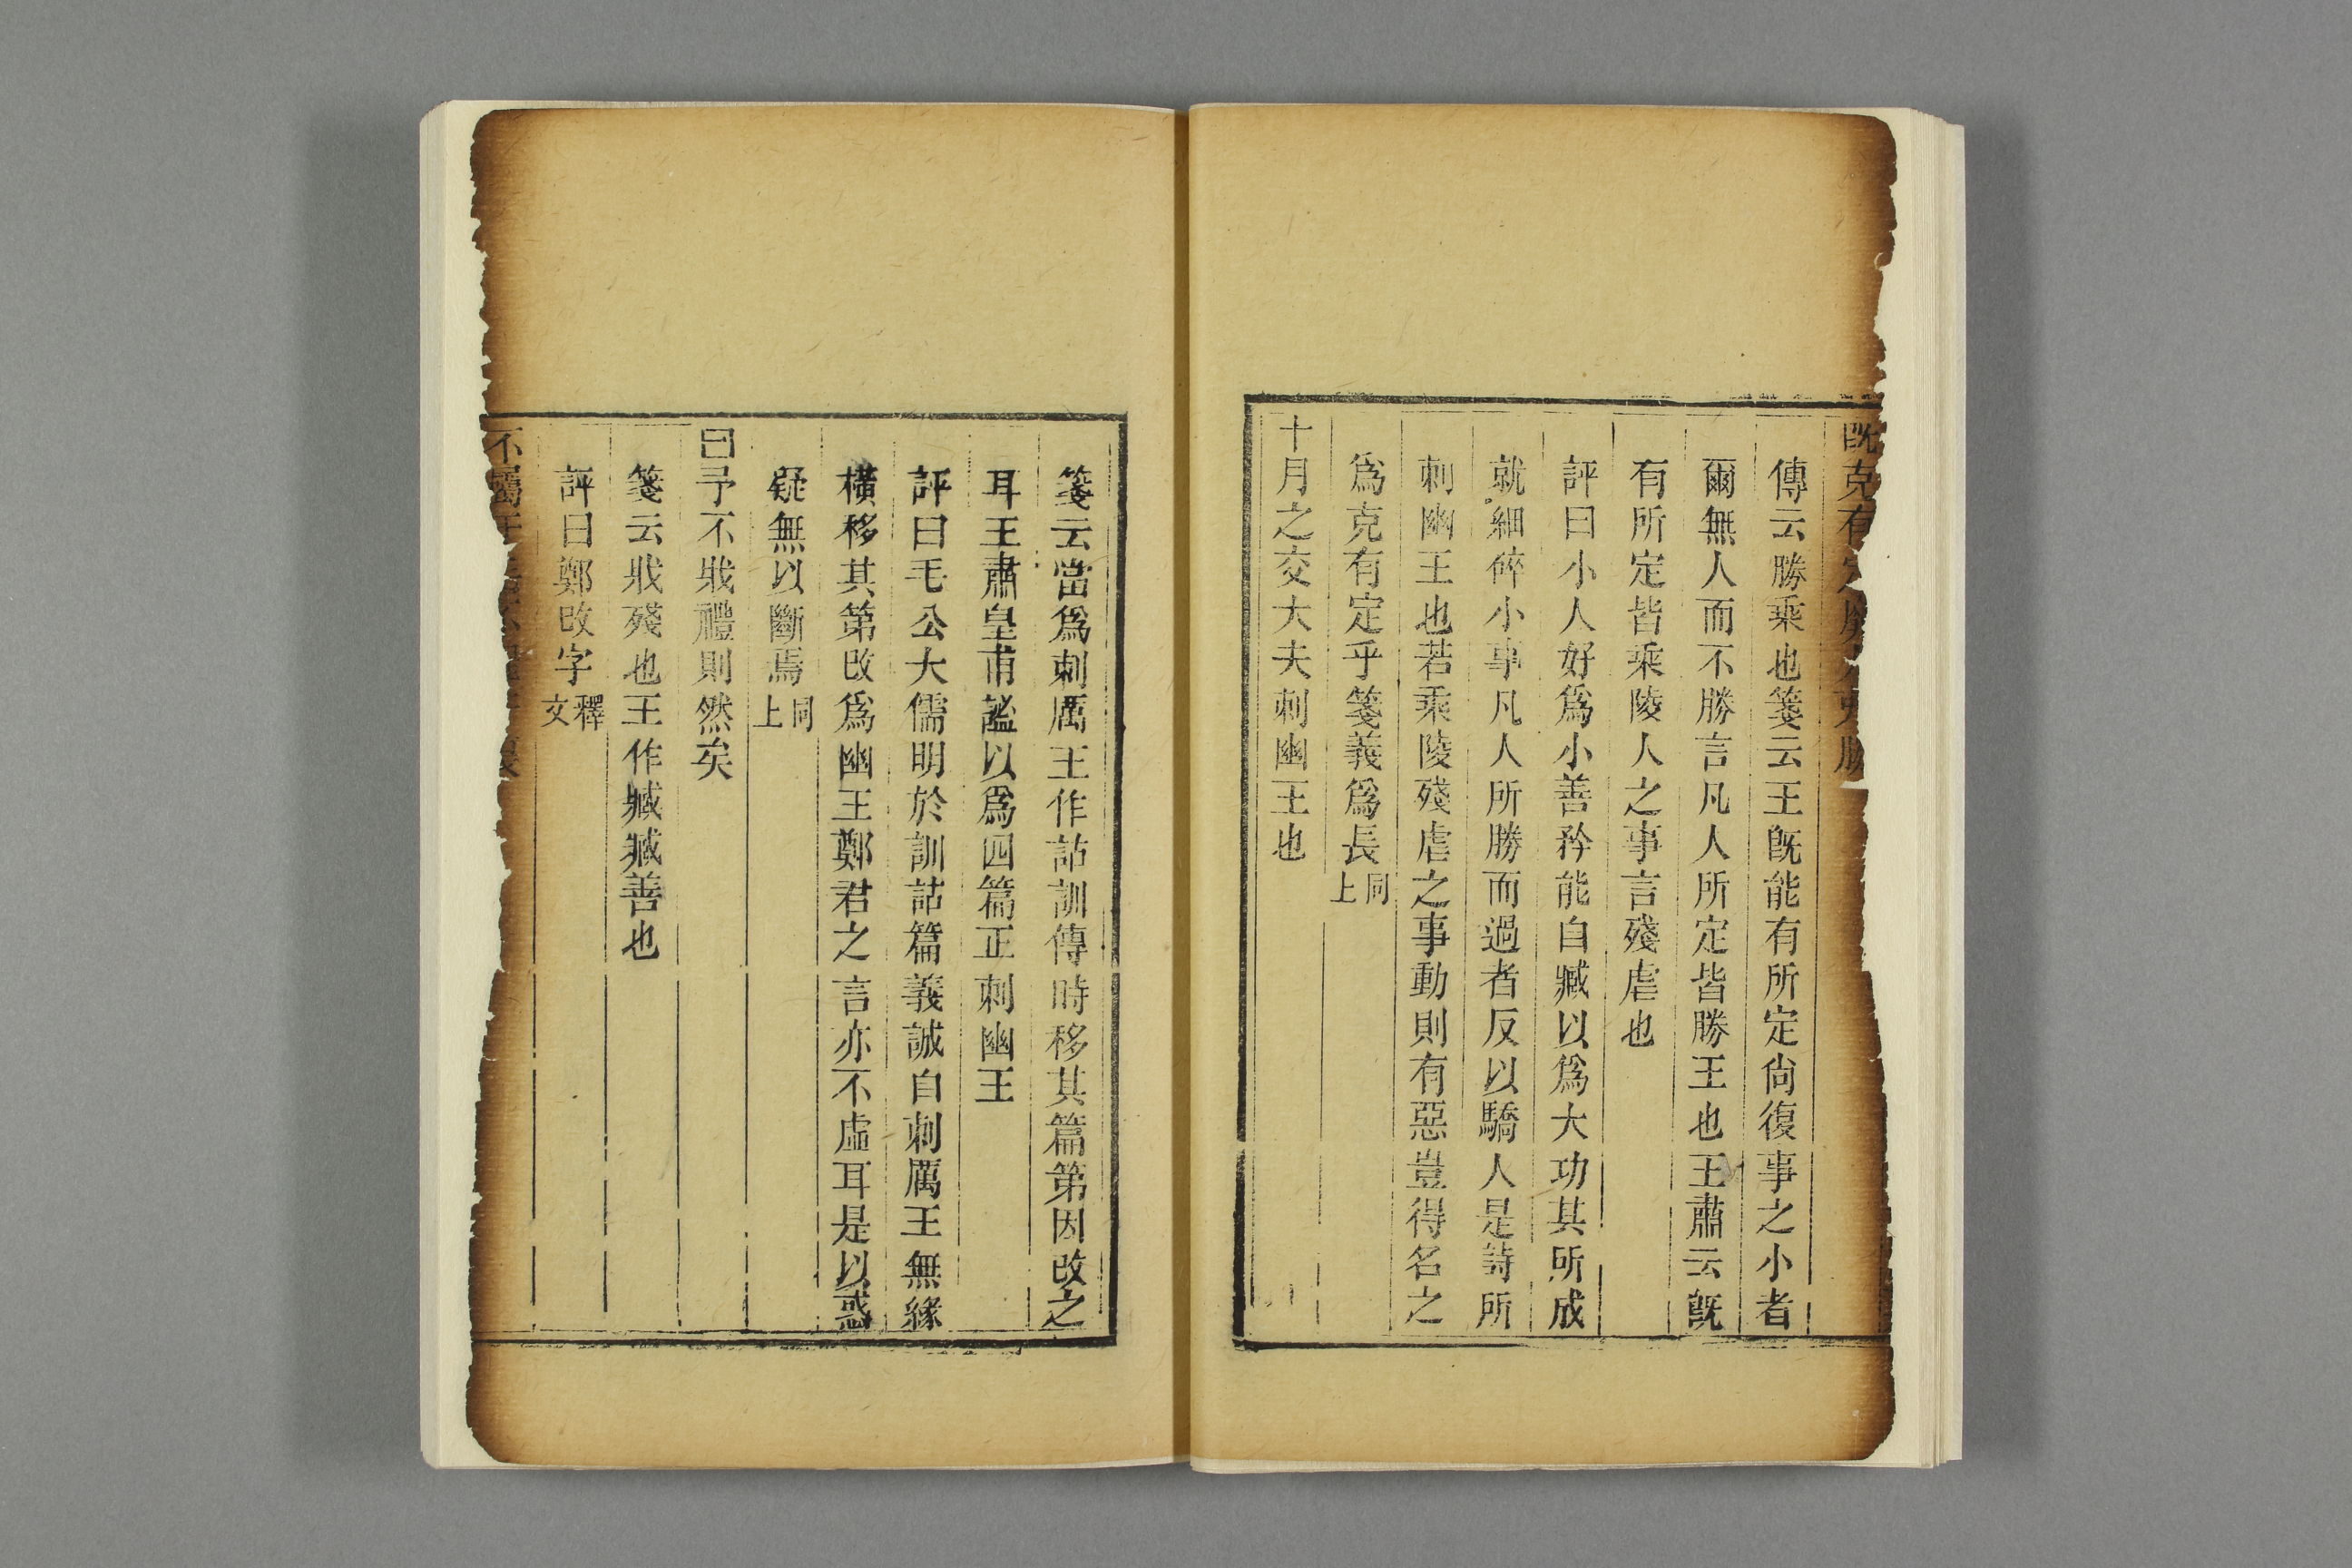 既克有定靡人弗勝
傳云勝乘也箋云王既能有所定尙復事之小者
爾無人而不勝言凡人所定皆勝王也王肅云既
有所定皆乘陵人之事言殘虐也
評曰小人好爲小善矜能自臧以爲大功其所成
就細碎小事凡人所勝而過者反以驕人是詩所
刺幽王也若乘陵殘虐之事動則有惡豈得名之
爲克有定乎箋義爲長同上
十月之交大夫刺幽王也
箋云當爲刺厲王作詁訓傳時移其篇第因改之
耳王肅皇甫謐以爲四篇正刺幽王
評曰毛公大儒明於訓詁篇義誠自刺厲王無緣
橫移其第改爲幽王鄭君之言亦不虛耳是以惑
疑無以斷焉同上
曰予不戕禮則然矣
箋云戕殘也王作臧臧善也
評曰鄭改字釋文
不屬